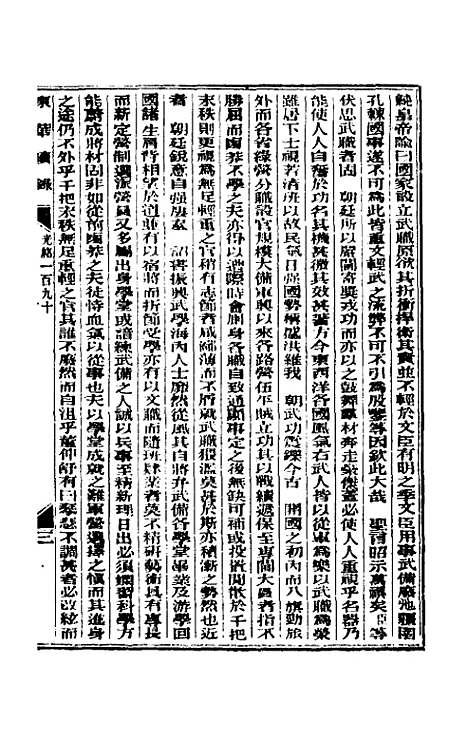 純皇帝諭曰國家設立武職原資其折衝捍衛其實並不輕於文臣有明之季文臣用事武備廢弛疆圉
孔棘國事遂不可為此皆重文輕武之流弊不可不引為殷鑒等因欽此大哉　聖言昭示萬禩矣臣等
伏思武職者固　朝廷所以屬闓寄獎戎功而亦以之鼓舞羣材奔走桀傑蓋必使人人重視乎名器乃
能使人人自奮於功名其機甚微其效甚著方今東西洋各國風氣右武人皆以從軍為樂以武職為榮
雖居下士視若清班以故民氣日強國勢橫盛洪維我　朝武功震爍今古　開國之初內而八旗勁旅
外而各省綠營分職設官規模大備軍興以來各路營伍平賊立功其以戰績遞保至專閫大臣者指不
勝屈而鹵莽不學之夫亦得以遭際時會側身各職自致通顯事定之後無缺可補或投置閒散於千把
末秩則更視為無足輕重之官稍有志節者咸鄙薄而不屑就武職猥濫莫甚於斯亦積漸之勢然也近
者　朝廷銳意自強屢降　詔書振興武學海內人士靡然從風其自將弁武備各學堂畢業及游學回
國諸生肩背相望於道雖有以宿將而折節受學亦有以文職而隨班肄業者莫不精研藝術具有專長
而新定營制選派營員又多屬出身學堂或諳練武備之人誠以兵事至精新理日出必須嫻習科學方
能蔚成將材固非如從前鹵莽之夫徒恃血氣以從事也夫以學堂成就之難軍營選擇之慎而其進身
之途仍不外乎千把末秩無足重輕之官其誰不廢然而自沮乎董仲舒有曰琴瑟不調甚者必改絃而
東華續錄　光緒一百九十　三